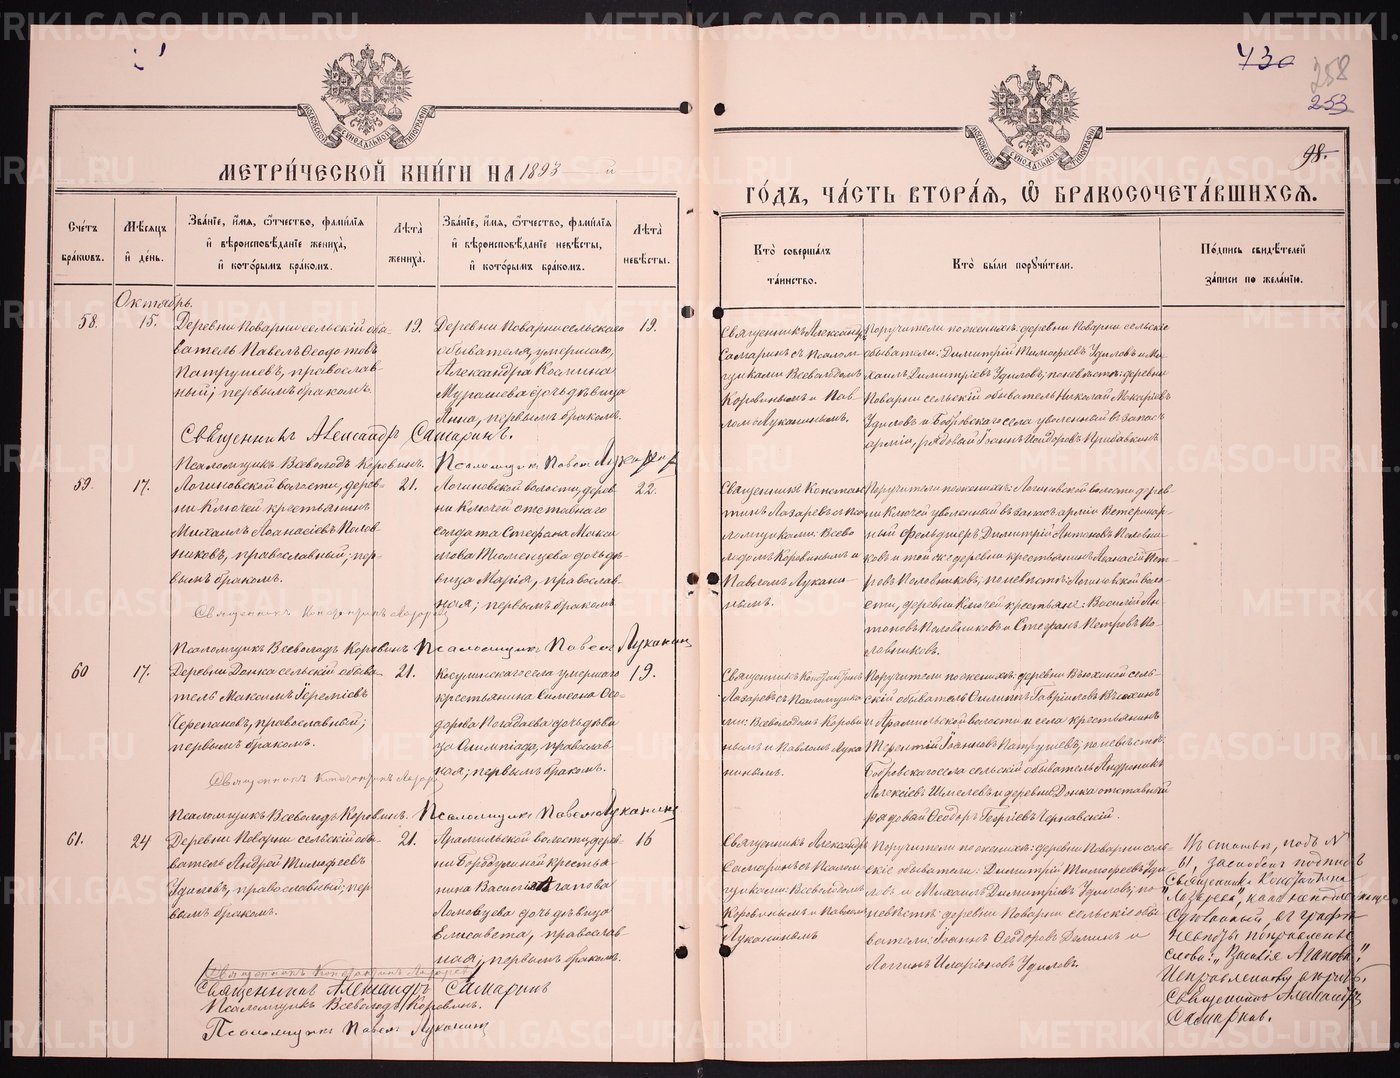 730
258
253
98.
МОСКОВСКОЙ СѴНОДАЛЬНОЙ ТИПОГРАФІИ
МОСКОВСКОЙ СѴНОДАЛЬНОЙ ТИПОГРАФІИ
МЕТРИ́ЧЕСКОЙ КНИ́ГИ НА 1893 й
ГО́ДЪ, ЧА́СТЬ ВТОРА́Ѧ, Ѡ҆ БРАКОСОЧЕТА́ВШИХСѦ.
Сче́тъ бра́кѡвъ.
Мѣ́сѧцъ и҆ де́нь.
Зва́нїе, и҆́мѧ, ѻ҆́тчество, фами́лїѧ
и҆ вѣроисповѣ́данїе жениха̀,
и҆ кото́рымъ бра́комъ.
Лѣ́та жениха̀.
Зва́нїе, и҆́мѧ, ѻ҆́тчество, фами́лїѧ
и҆ вѣроисповѣ́данїе невѣ́сты,
и҆ кото́рымъ бра́комъ.
Лѣ́та невѣ́сты.
Кто̀ соверша́лъ та́инство.
Кто̀ бы́ли порꙋчи́тели.
По́дпись свидѣ́телей за́писи по жела́нїю.
Октябрь.
58.
15.
Деревни Поварни сельскій обы-
ватель Павелъ Ѳеодотовъ
Патрушевъ, православ-
ный; первымъ бракомъ.
19.
Деревни Поварни сельскаго
обывателя, умершаго,
Александра Космина
Мурашева дочь дѣвица
Анна, первымъ бракомъ.
19.
Священникъ Александръ
Самаринъ съ псалом-
щиками Всеволодомъ
Коровинымъ и Пав-
ломъ Луканинымъ.
Поручители по женихѣ: деревни Поварни сельскіе
обыватели: Димитрій Тимоѳеевъ Удиловъ и Ми-
хаилъ Димитріевъ Удиловъ; по невѣстѣ: деревни
Поварни сельскій обыватель Николай Макаріевъ
Удиловъ и Бобровскаго села уволенный въ запасъ
арміи, рядовый Іоаннъ Исидоровъ
Священникъ Александръ Самаринъ.
Псаломщикъ Всеволодъ Коровинъ. Псаломщикъ Павелъ Луканинъ
59.
17.
Логиновской волости, дерев-
ни Ключей крестьянинъ
Михаилъ Аѳанасіевъ Полов-
никовъ, православный; пер-
вымъ бракомъ.
21.
Логиновской волости, дерев-
ни Ключей отставнаго
солдата Стефана Макси-
мова Тюменцева дочь дѣ-
вица Марія, православ-
ная; первымъ бракомъ.
22.
Священникъ Констан-
тинъ Лазаревъ съ пса-
ломщиками: Всево-
лодомъ Коровинымъ и
Павломъ Лукани-
нымъ.
Поручители по женихѣ: Логиновской волости дерев-
ни Ключей уволенный въ запасъ арміи Ветеринар-
ный фельдшеръ Димитрій Антоновъ Половни-
ковъ и той же деревни крестьянинъ Аѳанасій Пет-
ровъ Половниковъ; по невѣстѣ: Логиновской воло-
сти, деревни Ключей крестьяне: Василій Ан-
тоновъ Половниковъ и Стефанъ Петровъ По-
ловниковъ.
Священникъ Константинъ Лазаревъ
Псаломщикъ Всеволодъ Коровинъ Псаломщикъ Павелъ Луканинъ
60
17.
Деревни Донка сельскій обыва-
тель Максимъ Іереміевъ
Черепановъ, православный;
первымъ бракомъ.
21.
Косулинскаго села умершаго
крестьянина Симеона Ѳео-
дорова Погадаева дочь дѣви-
ца Олимпіада, православ-
ная; первымъ бракомъ.
19.
Священникъ Константинъ
Лазаревъ съ псаломщика-
ми: Всеволодомъ Корови-
нымъ и Павломъ Лука-
нинымъ.
Поручители по женихѣ: деревни Вьюхиной сель-
скій обыватель Филиппъ Гавріиловъ Вьюхинъ
и Арамильской волости и села крестьянинъ
Терентій Іоанновъ Патрушевъ; по невѣстѣ:
Бобровскаго села сельскій обыватель Андроникъ
Алексіевъ Шмелевъ и деревни Донка отставный
рядовой Ѳеодоръ Георгіевъ
Священникъ Константинъ Лазаревъ
Псаломщикъ Всеволодъ Коровинъ. Псаломщикъ Павелъ Луканинъ
61.
24
Деревни Поварни сельскій обы-
ватель Андрей Тимоѳеевъ
Удиловъ, православный; пер-
вымъ бракомъ.
21.
Арамильской волости, дерев-
ни Бородулиной крестья-
нина Василія Агапова
дочь дѣвица
Елисавета, православ-
ная; первымъ бракомъ.
16
Священникъ Александръ
Самаринъ съ псалом-
щиками: Всеволодомъ
Коровинымъ и Павломъ
Луканинымъ
Поручители по женихѣ: деревни Поварни сель-
скіе обыватели: Димитрій Тимоѳеевъ Уди-
ловъ и Михаилъ Димитріевъ Удиловъ; по
невѣстѣ: деревни Поварни сельскіе обы-
ватели: Іоаннъ Ѳеодоровъ Деминъ и
Логгинъ Иларіоновъ Удиловъ.
Къ статьѣ, подъ №
61, подпись
Священника Константина
Лазарева",
въ графѣ
невѣсты поправлены
слова: "Василія Агапова".
Священникъ Александръ
Самаринъ.
Священникъ Константинъ Лазаревъ
Священникъ Александръ Самаринъ
Псаломщикъ Всеволодъ Коровинъ.
Псаломщикъ Павелъ Луканинъ
METRIKI.GASO-URAL.RU